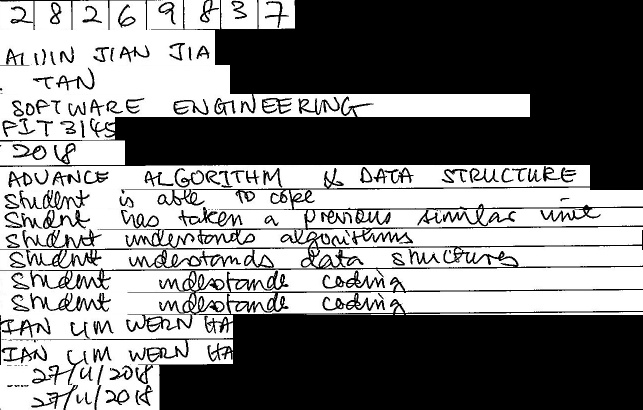 2 8 2 6 9 8 3 7
ALVIN JIAN JIA
TAN
SOFTWARE ENGINEERING
FIT3145
2018
ADVANCE ALGORITHM & DATA STRUCTURE
Student is able to cope
Student has taken a previous similar unit
Student understands algorithms
Student understands data structures
Student understands coding
Student understands coding
IAN LIM WERN HA
IAN LIM WERN HA
27/11/2018
27/11/2018